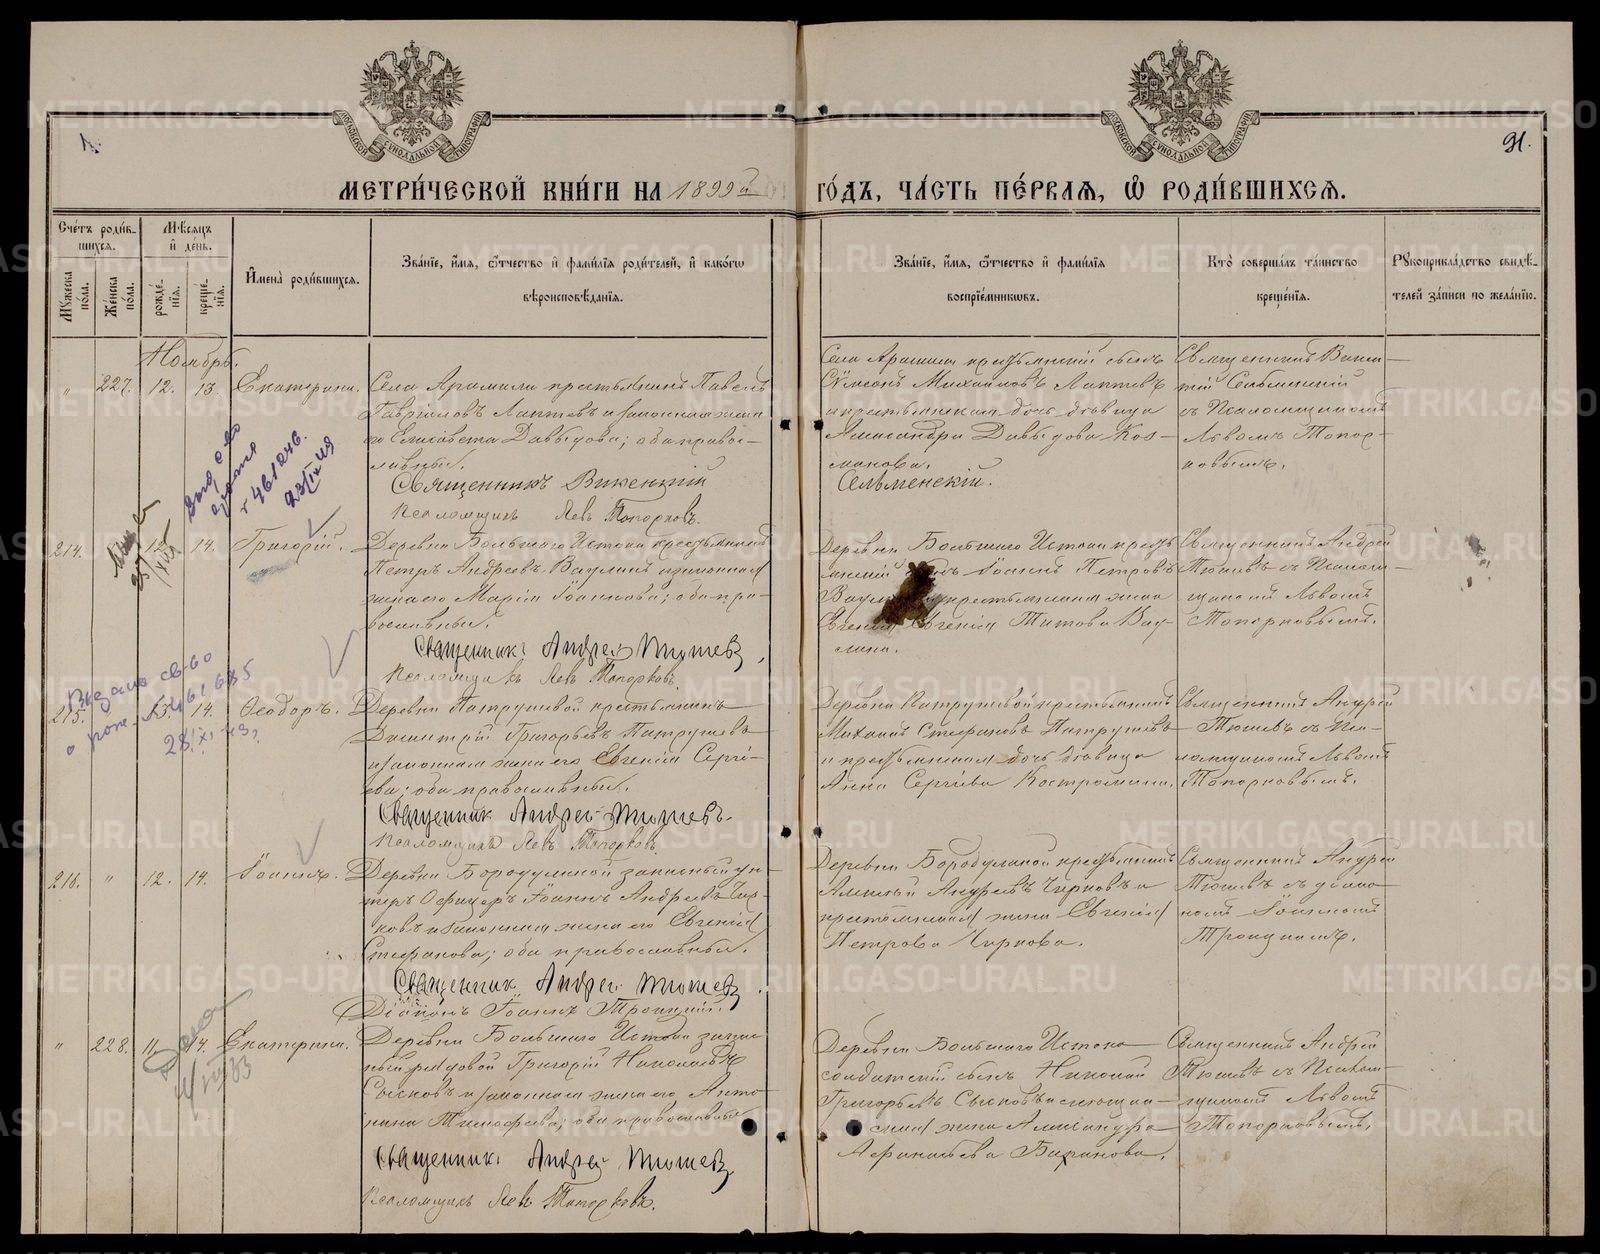 МОСКОВСКОЙ СѴНОДАЛЬНОЙ ТИПОГРАФІИ
МОСКОВСКОЙ СѴНОДАЛЬНОЙ ТИПОГРАФІИ
91.
МЕТРИ́ЧЕСКОЙ КНИ́ГИ НА 1899й ГО́ДЪ, ЧА́СТЬ ПЕ́РВАѦ, Ѡ҆ РОДИ́ВШИХСѦ.
Сче́тъ роди́вшихсѧ.
Мꙋжеска по́ла.
Же́нска по́ла.
Мѣ́сѧцъ и҆ де́нь.
рожде́нїѧ.
креще́нїѧ.
И҆мена̀ роди́вшихсѧ.
Зва́нїе, и҆́мѧ, ѻ҆́тчество и҆ фами́лїѧ роди́телей, и҆ како́гѡ
вѣроисповѣ́данїѧ.
Зва́нїе, и҆́мѧ, ѻ҆́тчество и҆ фами́лїѧ
воспрїе́мникѡвъ.
Кто̀ соверша́лъ та́инство
креще́нїѧ.
Рꙋкоприкла́дство свидѣ́-
телей за́писи по жела́нїю.
Ноябрь.
" 227. 12. 13. Екатерина.
Села Арамили крестьянинъ Павелъ
Гавріиловъ Лаптевъ и законная жена
его Елисавета Давыдова; оба право-
славные.
Священникъ Викентій Сельменскій.
Псаломщикъ Левъ Топорковъ.
Села Арамили крестьянскій сынъ
Сѵмеонъ Михайловъ Лаптевъ
и крестьянская дочь девица
Александра Давыдова Коз-
Священникъ Викен-
тій Сельменскій
съ Псаломщикомъ
Львомъ Топор-
ковымъ.
№ 461246.
23/IX 49
214. 12. 14. Григорій.
Деревни Большаго Истока крестьянинъ
Петръ Андреевъ Ваулинъ и законная
жена его Марія Іоаннова; оба пра-
вославные.
Священникъ Андрей Тюшевъ
Псаломщикъ Левъ Топорковъ.
Деревни Большаго Истока кресть-
янскій сынъ Іоаннъ Петровъ
и крестьянская жена
Евгенія Титова Вау-
лина.
Священникъ Андрей
Тюшевъ съ Псалом-
щикомъ Львомъ
Топорковымъ.
Выдано св-во
о рож. № 461635
28/XI-49,
215. 13. 14. Ѳеодоръ.
Деревни Патрушевой крестьянинъ
Димитрій Григорьевъ Патрушевъ
и законная жена его Евгенія Сергі-
ева; оба православные.
Священникъ Андрей Тюшевъ.
Псаломщикъ Левъ Топорковъ.
Деревни Патрушевой крестьянинъ
Михаилъ Стефановъ Патрушевъ
и крестьянская дочь девица
Анна Сергіева Костромина.
Священникъ Андрей
Тюшевъ съ Пса-
ломщикомъ Львомъ
Топорковымъ.
216. " 12. 14. Іоаннъ.
Деревни Бородулиной запасный ун-
теръ Офицеръ Іоаннъ Андреевъ Чир-
ковъ и законная жена его Евгенія
Стефанова; оба православные.
Священникъ Андрей Тюшевъ.
Діаконъ Іоаннъ Троицкій.
Деревни Бородулиной крестьянинъ
Алексѣй Андреевъ Чирковъ и
крестьянская жена Евгенія
Петрова Чиркова.
Священникъ Андрей
Тюшевъ съ діако-
номъ Іоанномъ
Троицкимъ.
" 228. 11. 14. Екатерина.
Деревни Большаго Истока запас-
ный рядовой Григорій Николаевъ
Сысковъ и законная жена его Анто-
нина Тимофеева; оба православные
Священникъ Андрей Тюшевъ
Псаломщикъ Левъ Топорковъ.
Деревни Большаго Истока
солдатскій сынъ Николай
Григорьевъ Сысковъ и
жена Александра
Афанасьева Баранова.
Священникъ Андрей
Тюшевъ съ Псалом-
щикомъ Львомъ
Топорковымъ.
METRIKI.GASO-URAL.RU